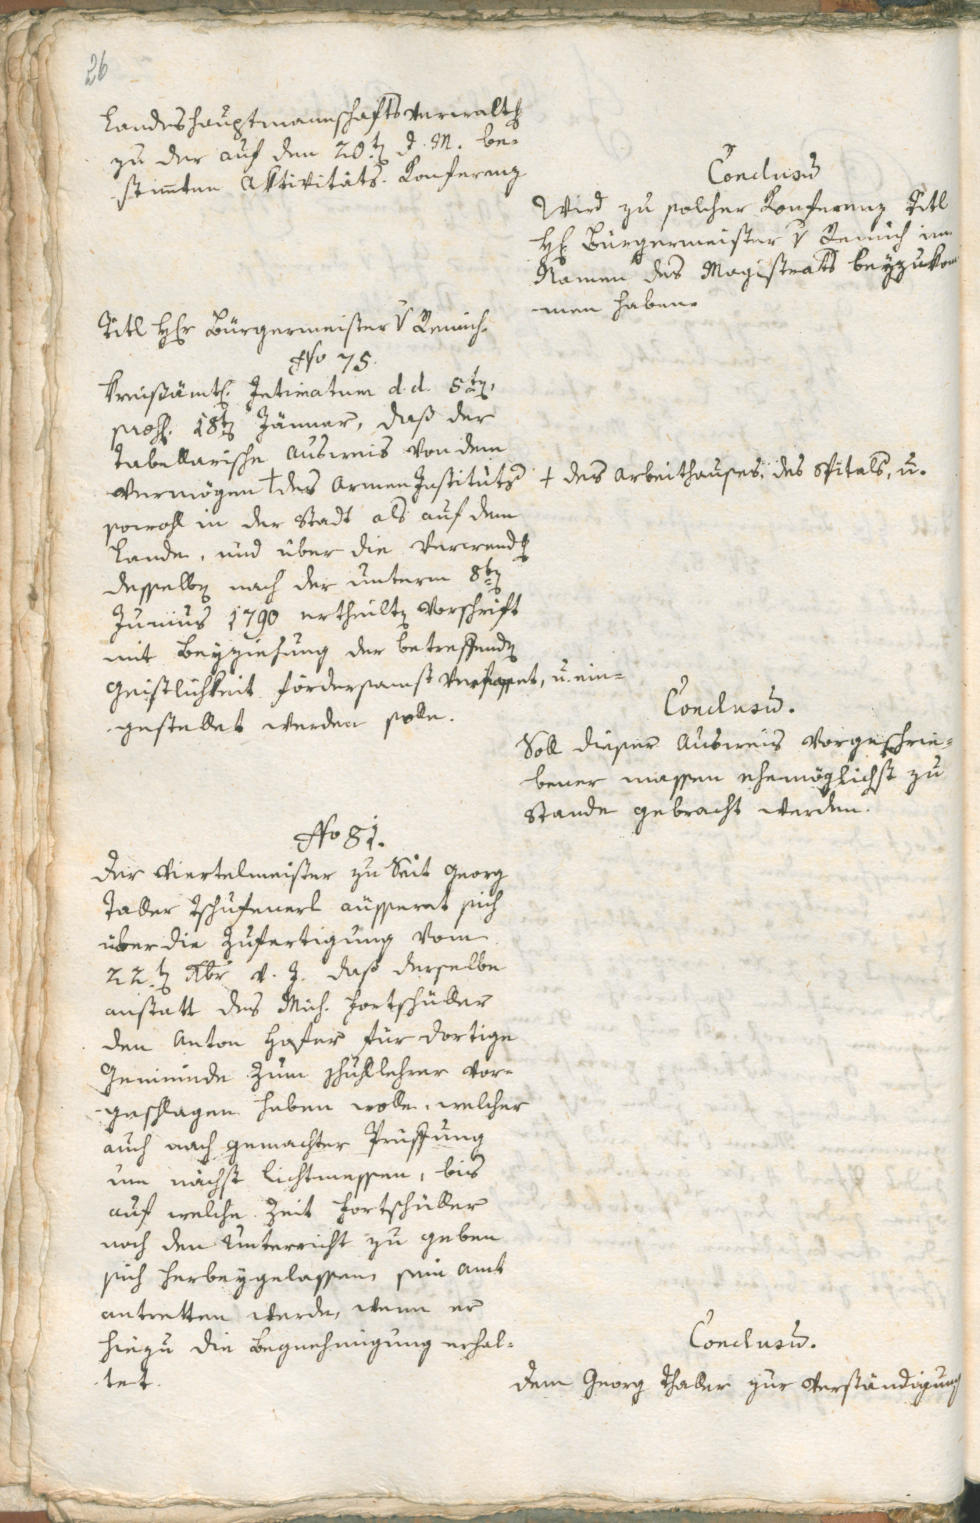 26
Landeshauptmannschafts Verwaltg
zu der auf den 20.t d. M. be-
stimten Aktivitäts-Konferenz
Conclusum
Wird zu solcher Konferenz Titl
H: Bürgermeister v Remich im
Namen des Magistrats beyzukom
-men haben.
Titl Hr Bürgermeister v Remich.
No 75.
Kreisämtl. Intimatum d. d. 5t,
præs. 18t Jänner, daß der
Tabellarische Ausweis von dem
Vermögen + des Armen Instituts
+ des Arbeithauses, des Spitals, u.
sowohl in der Stadt als auf dem
Lande, und über die Verwendg
desselbn nach der unterm 8t
Junius 1790 ertheiltn Vorschrift
mit Beyziehung der betreffendn
Geistlichkeit fördersamst verfasset, u. ein-
gestellet werden solle.
Conclusum.
Soll dieser Ausweis vorgeschrie-
bener massen ehemöglichst zu
Stande gebracht werden.
No 81.
Der Viertelmeister zu Seit Georg
Taller Tschufenerl äussert sich
über die Zufertigung vom
22.t Xbr v. J. daß derselbe
anstatt des Mich. Fortschüller
den Anton Hafer für dortige
Gemeinde zum Schullehrer vor-
geschlagen haben wolle, welcher
auch nach gemachter Prüffung
um nächst Lichtmessen, bis
auf welche Zeit Fortschüller
noch den Unterricht zu geben
sich herbeygelassen, sein Amt
antretten werde, wenn er
hiezu die Begnehmigung erhal-
tet.
Conclusum.
Dem Georg Thaller zur Verständigung